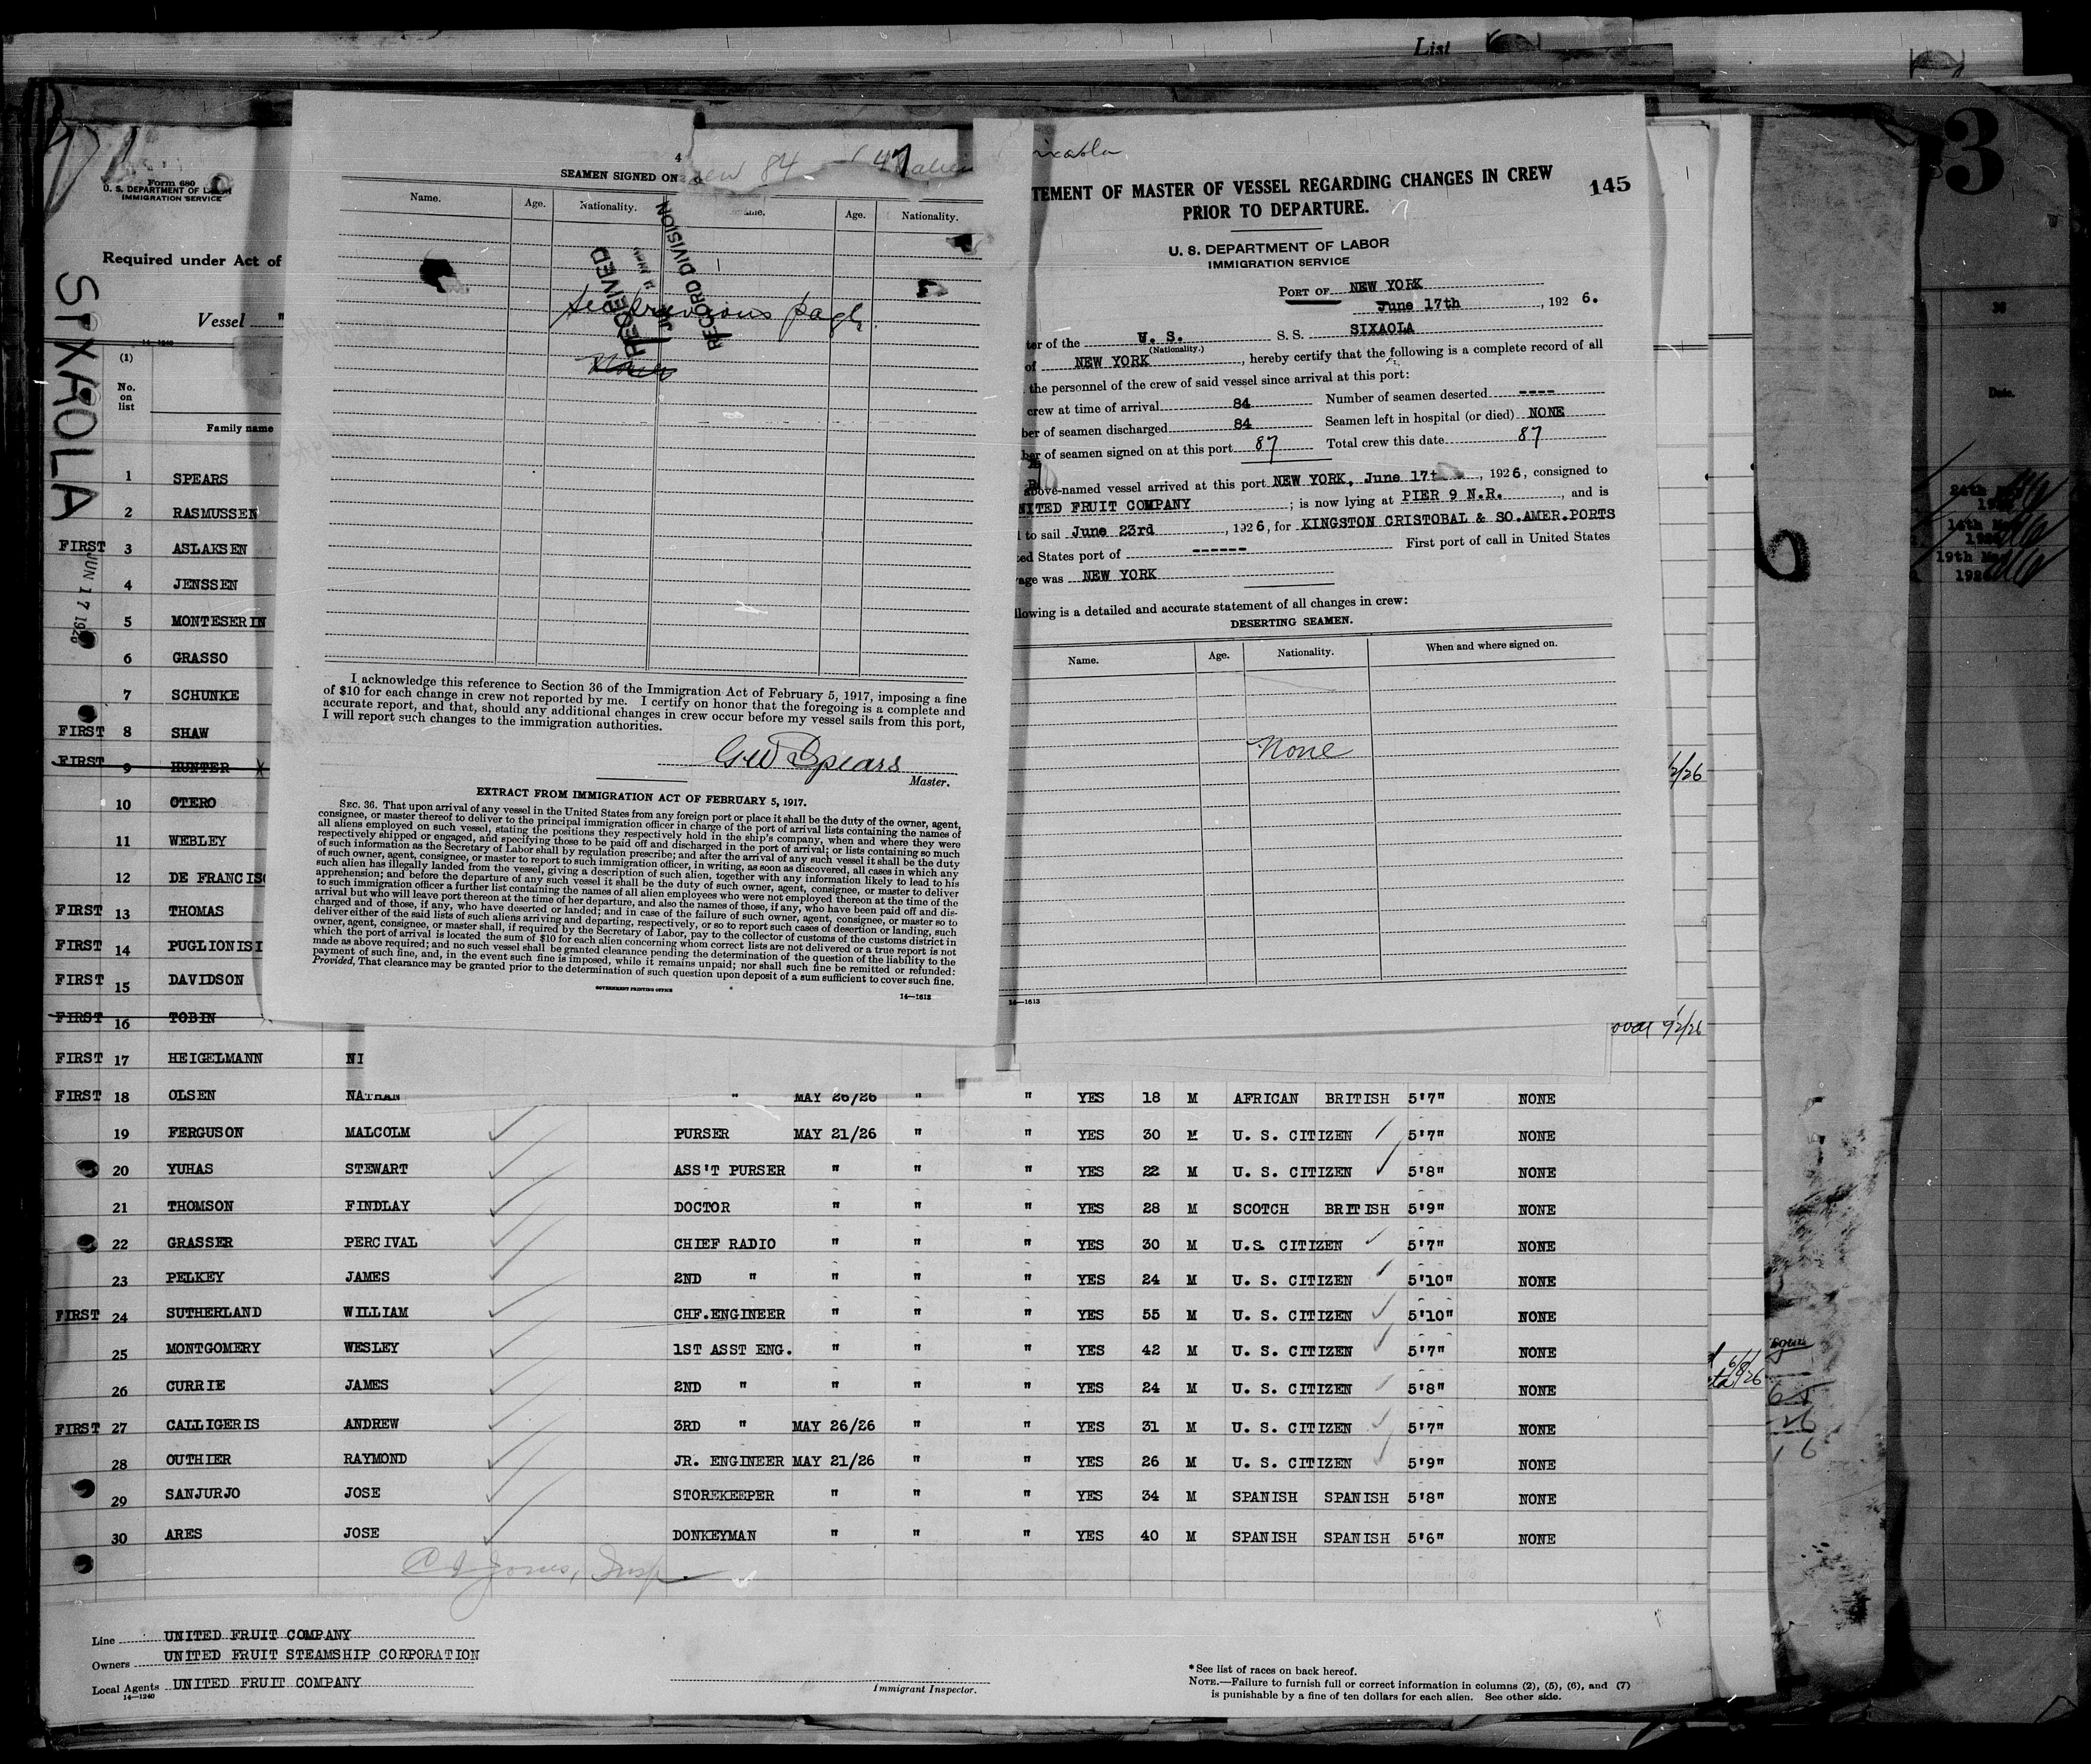 List
3
Form 680
U. S. DEPARTMENT OF LABOR
IMMIGRATION SERVICE
Required under Act of
Vessel "
14—1240
SIXAOLA
JUN 17 1926
(1)
No.
on
list
Family name
1 SPEARS
2 RASMUSSEN
FIRST 3 ASLAKSEN
4 JENSSEN
5 MONTESERIN
6 GRASSO
7 SCHUNKE
FIRST 8 SHAW
FIRST 9 HUNTER
10 OTERO
11 WEBLEY
12 DE FRANCISC
FIRST 13 THOMAS
FIRST 14 PUGLIONISI
FIRST 15 DAVIDSON
FIRST 16 TOBIN
FIRST 17 HEIGELMANN NI
FIRST 18 OLSEN NATHAN " MAY 26/26 " " YES 18 M AFRICAN BRITISH 5'7" NONE
19 FERGUSON MALCOLM PURSER MAY 21/26 " " YES 30 M U. S. CITIZEN 5'7" NONE
20 YUHAS STEWART ASS'T PURSER " " " YES 22 M U. S. CITIZEN 5'8" NONE
21 THOMSON FINDLAY DOCTOR " " " YES 28 M SCOTCH BRITISH 5'9" NONE
22 GRASSER PERCIVAL CHIEF RADIO " " " YES 30 M U.S. CITIZEN 5'7" NONE
23 PELKEY JAMES 2ND " " " " YES 24 M U. S. CITIZEN 5'10" NONE
FIRST 24 SUTHERLAND WILLIAM CHF.ENGINEER " " " YES 55 M U. S. CITIZEN 5'10" NONE
25 MONTGOMERY WESLEY 1ST ASST ENG. " " " YES 42 M U. S. CITIZEN 5'7" NONE
26 CURRIE JAMES 2ND " " " " YES 24 M U. S. CITIZEN 5'8" NONE
FIRST 27 CALLIGERIS ANDREW 3RD " MAY 26/26 " " YES 31 M U. S. CITIZEN 5'7" NONE
28 OUTHIER RAYMOND JR. ENGINEER MAY 21/26 " " YES 26 M U. S. CITIZEN 5'9" NONE
29 SANJURJO JOSE STOREKEEPER " " " YES 34 M SPANISH SPANISH 5'8" NONE
30 ARES JOSE DONKEYMAN " " " YES 40 M SPANISH SPANISH 5'6" NONE
Line UNITED FRUIT COMPANY
Owners UNITED FRUIT STEAMSHIP CORPORATION
Local Agents UNITED FRUIT COMPANY
14—1240
Immigrant Inspector.
* See list of races on back hereof.
NOTE.—Failure to furnish full or correct information in columns (2), (5), (6), and (7)
is punishable by a fine of ten dollars for each alien. See other side.
4
84 47
SEAMEN SIGNED ON
Name. Age. Nationality. Age. Nationality.
RECEIVED
RECORD DIVISION
See previous page
None
I acknowledge this reference to Section 36 of the Immigration Act of February 5, 1917, imposing a fine
of $10 for each change in crew not reported by me. I certify on honor that the foregoing is a complete and
accurate report, and that, should any additional changes in crew occur before my vessel sails from this port,
I will report such changes to the immigration authorities.
GW Spears
Master.
EXTRACT FROM IMMIGRATION ACT OF FEBRUARY 5, 1917.
SEC. 36. That upon arrival of any vessel in the United States from any foreign port or place it shall be the duty of the owner, agent,
consignee, or master thereof to deliver to the principal immigration officer in charge of the port of arrival lists containing the names of
all aliens employed on such vessel, stating the positions they respectively hold in the ship's company, when and where they were
respectively shipped or engaged, and specifying those to be paid off and discharged in the port of arrival; or lists containing so much
of such information as the Secretary of Labor shall by regulation prescribe; and after the arrival of any such vessel it shall be the duty
of such owner, agent, consignee, or master to report to such immigration officer, in writing, as soon as discovered, all cases in which any
such alien has illegally landed from the vessel, giving a description of such alien, together with any information likely to lead to his
apprehension; and before the departure of any such vessel it shall be the duty of such owner, agent, consignee, or master to deliver
to such immigration officer a further list containing the names of all alien employees who were not employed thereon at the time of the
arrival but who will leave port thereon at the time of her departure, and also the names of those, if any, who have been paid off and dis-
charged and of those, if any, who have deserted or landed; and in case of the failure of such owner, agent, consignee, or master so to
deliver either of the said lists of such aliens arriving and departing, respectively, or so to report such cases of desertion or landing, such
owner, agent, consignee, or master shall, if required by the Secretary of Labor, pay to the collector of customs of the customs district in
which the port of arrival is located the sum of $10 for each alien concerning whom correct lists are not delivered or a true report is not
made as above required; and no such vessel shall be granted clearance pending the determination of the question of the liability to the
payment of such fine, and, in the event such fine is imposed, while it remains unpaid; nor shall such fine be remitted or refunded:
Provided, That clearance may be granted prior to the determination of such question upon deposit of a sum sufficient to cover such fine.
GOVERNMENT PRINTING OFFICE
14—1613
TEMENT OF MASTER OF VESSEL REGARDING CHANGES IN CREW
PRIOR TO DEPARTURE.
145
U. S. DEPARTMENT OF LABOR
IMMIGRATION SERVICE
PORT OF NEW YORK
June 17th , 192 6.
ter of the U. S. S. S. SIXAOLA
(Nationality.)
of NEW YORK , hereby certify that the following is a complete record of all
the personnel of the crew of said vessel since arrival at this port:
crew at time of arrival 84 Number of seamen deserted ----
ber of seamen discharged 84 Seamen left in hospital (or died) NONE
ber of seamen signed on at this port 87 Total crew this date 87
above-named vessel arrived at this port NEW YORK, June 17t , 192 6, consigned to
NITED FRUIT COMPANY ; is now lying at PIER 9 N.R. , and is
to sail June 23rd , 192 6, for KINGSTON CRISTOBAL & SO.AMER.PORTS
ed States port of ------ First port of call in United States
age was NEW YORK
llowing is a detailed and accurate statement of all changes in crew:
DESERTING SEAMEN.
Name. Age. Nationality. When and where signed on.
None
14—1613
Date.
24th
14th
19th